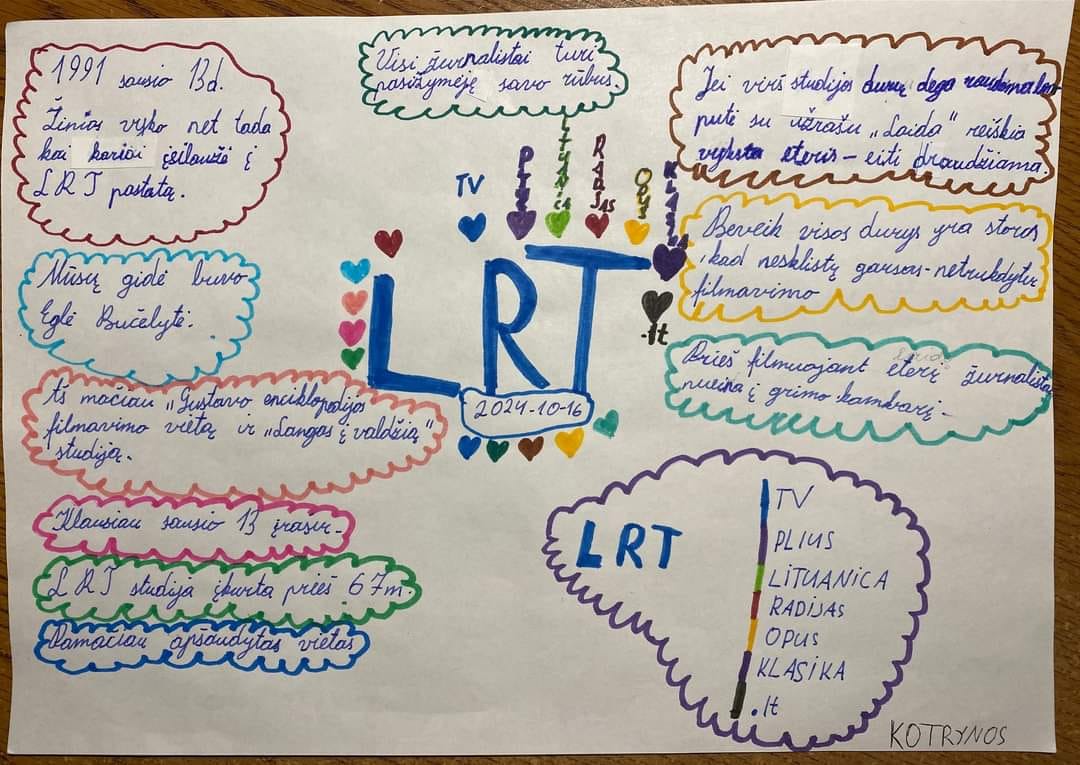 1991 sausio 13d.
Žinios vyko net tada
kai kariai įsilaužė į
LRT pastatą.
Visi žurnalistai turi
pasižymėję savo rūbus.
Jei virš studijos durų dega raudona lem
putė su užrašu „Laida" reiškia
vyksta eteris - eiti draudžiama.
Mūsų gidė buvo
Eglė Bučelytė.
TV
PLIUS
LITUANICA
RADIJAS
OPUS
KLASIKA
.lt
LRT
2024-10-16
Beveik visos durys yra storos
, kad nesklistų garsas - netrukdytų
filmavimo
Prieš filmuojant eterį žurnalistas
nueina į grimo kambarį -
Aš mačiau „Gustavo enciklopedijos
filmavimo vietą ir „Langas į valdžią"
studiją.
Klausiau sausio 13 įrašų -
LRT studija įkurta prieš 67m.
Pamačiau apšaudytas vietas
LRT
TV
PLIUS
LITUANICA
RADIJAS
OPUS
KLASIKA
.lt
KOTRYNOS